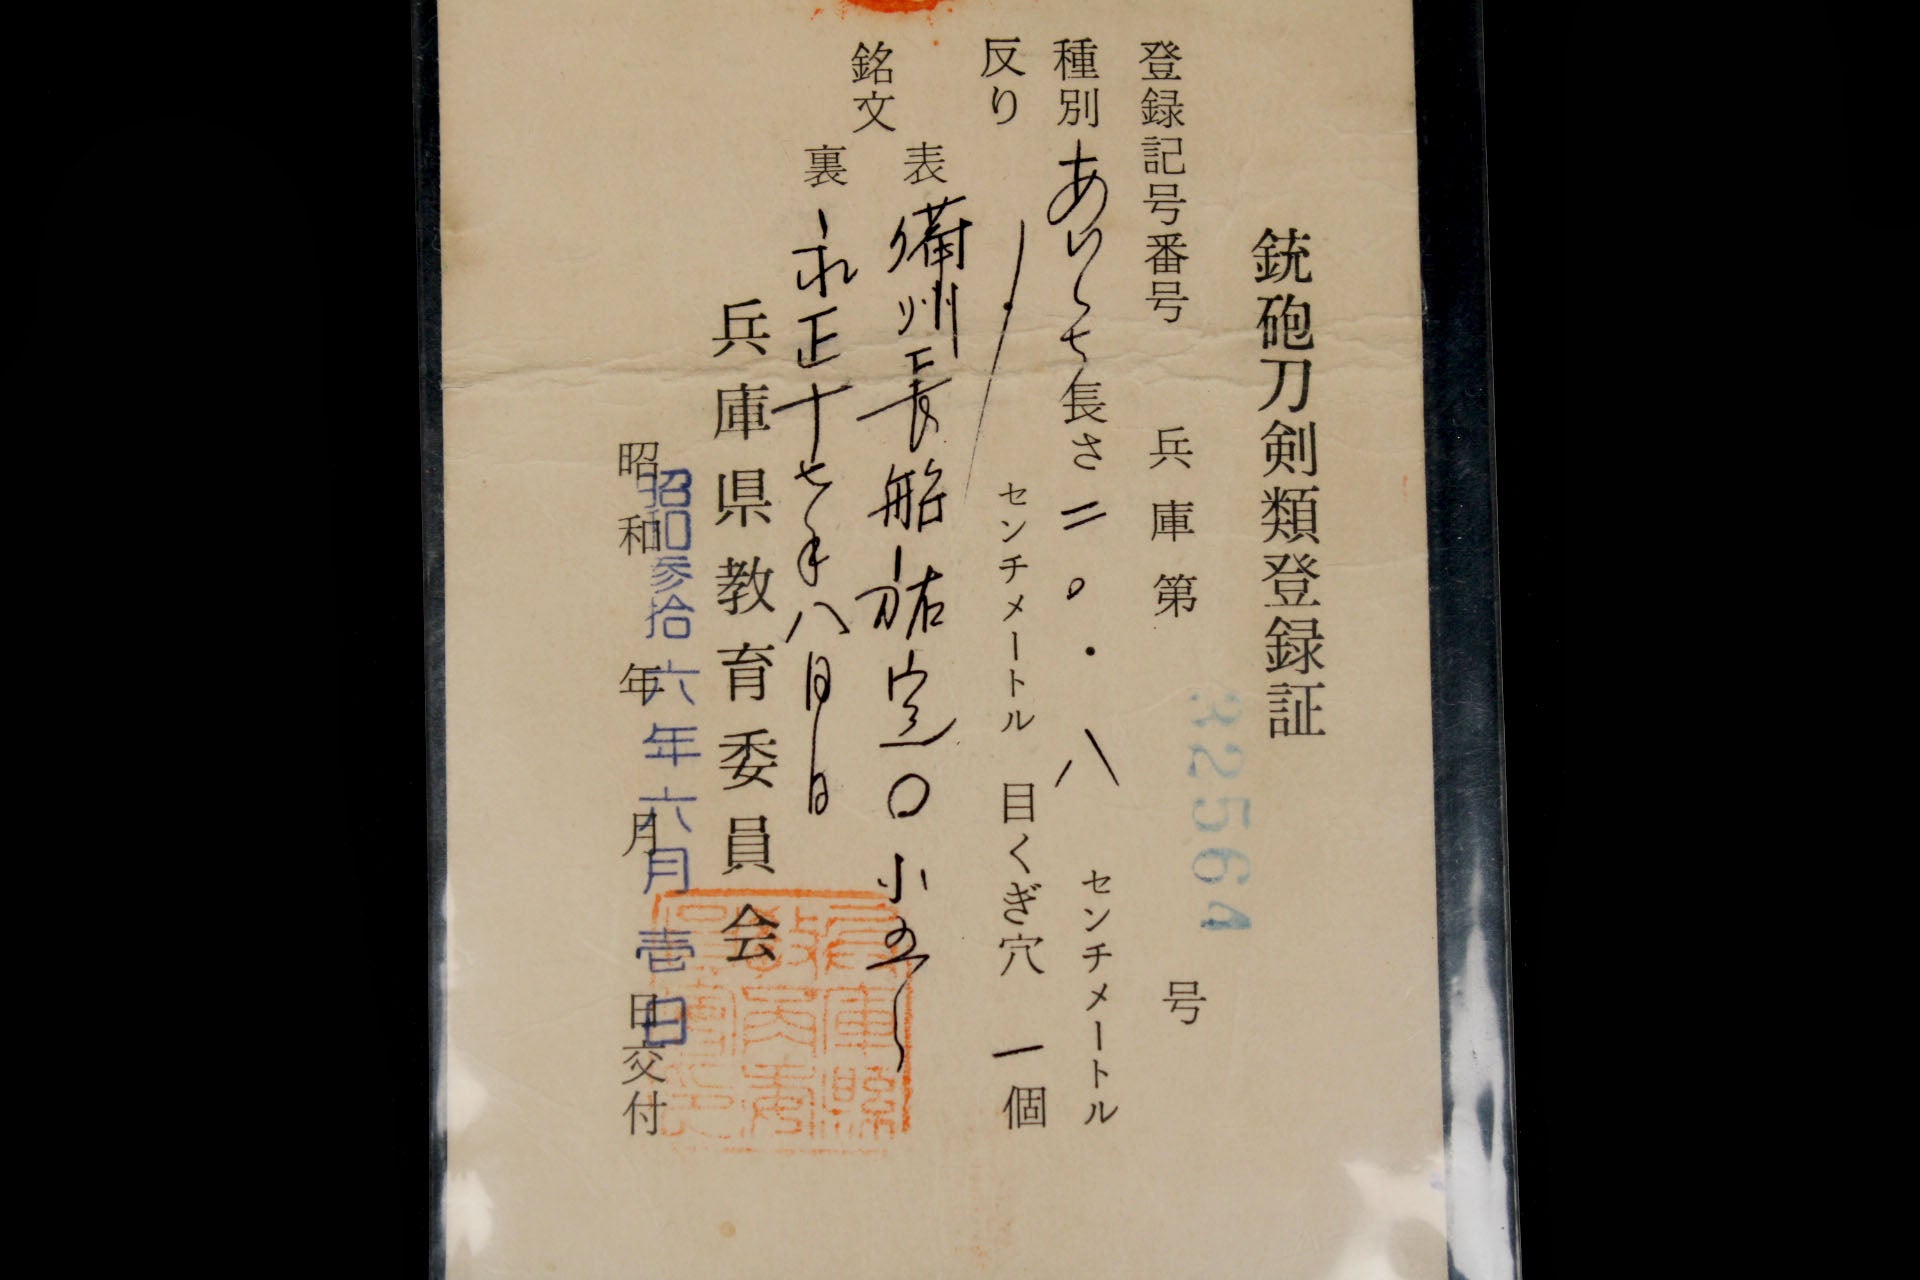 銃砲刀剣類登録証
登録記号番号 兵庫第 32564 号
種別 あいくち 長さ 二〇・八 センチメートル
反り センチメートル 目くぎ穴 一個
銘文
表 備州長船祐定〇
裏 永正十七年八月日
兵庫県教育委員会
昭和 年 月 日交付
昭和参拾六年六月壱日